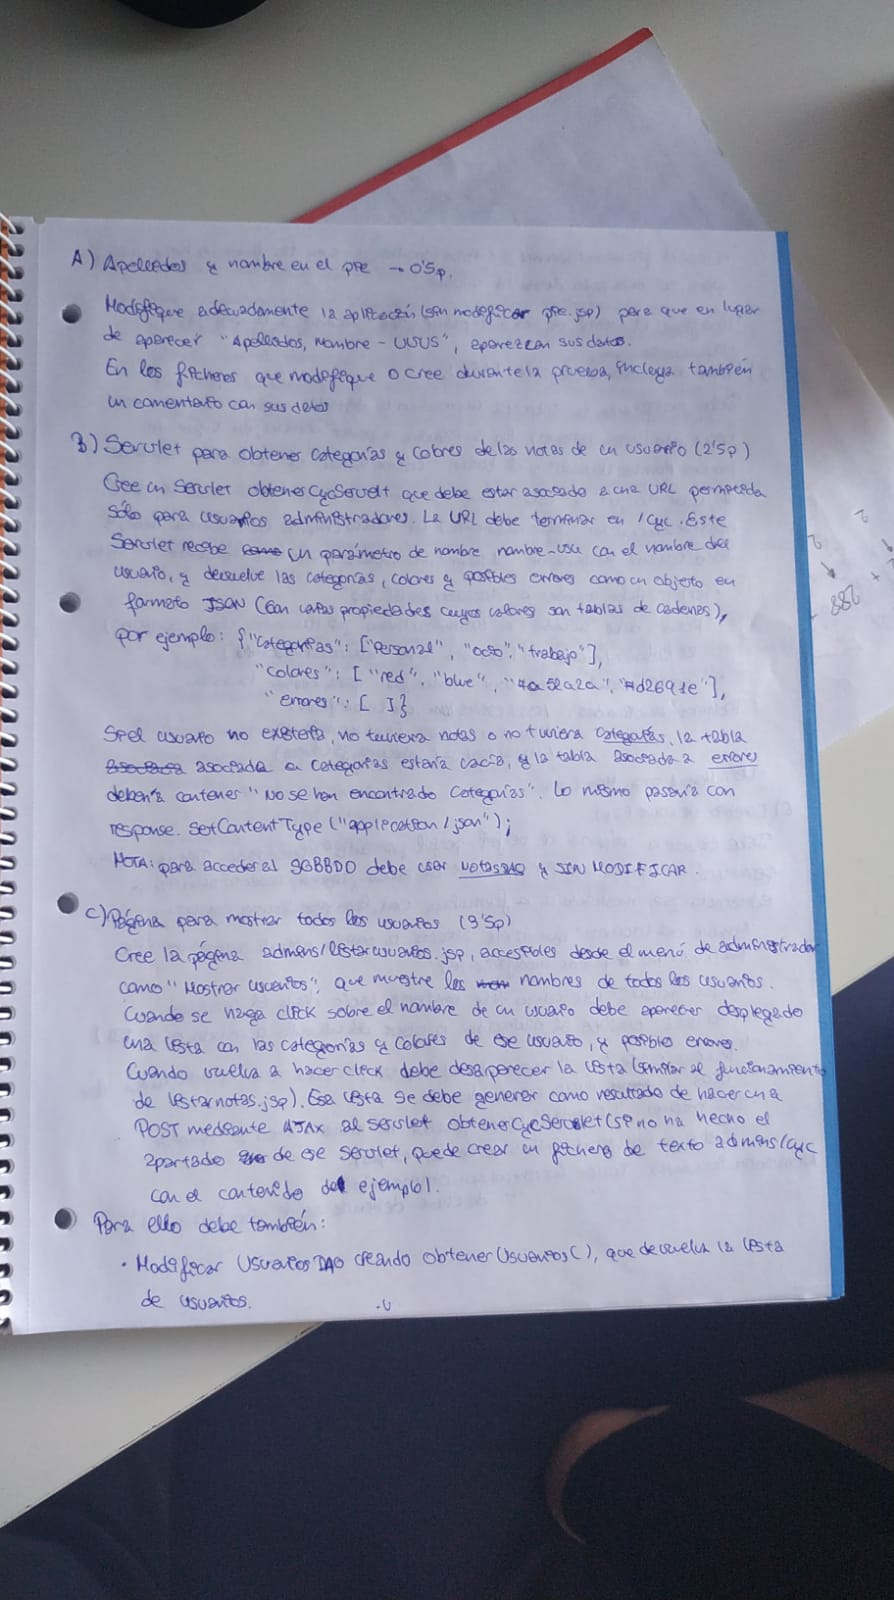 A) Apellidos y nombre en el pie → 0'5p.
Modifique adecuadamente la aplicación (sin modificar pie.jsp) para que en lugar
de aparecer "Apellidos, Nombre - UVUS", aparezcan sus datos.
En los ficheros que modifique o cree durante la prueba, incluya también
un comentario con sus datos
B) Servlet para obtener categorías y colores de las notas de un usuario (2'5p)
Cree un Servlet obtenerCyCServlet que debe estar asociado a una URL permitida
sólo para usuarios administradores. La URL debe terminar en /cyc. Este
Servlet recibe un parámetro de nombre nombre-usu con el nombre del
usuario, y devuelve las categorías, colores y posibles errores como un objeto en
formato JSON (con varias propiedades cuyos valores son tablas de cadenas),
por ejemplo: {"categorías": ["Personal", "ocio", "trabajo"],
"colores": ["red", "blue", "#a52a2a", "#d2691e"],
"errores": [ ]}
Si el usuario no existiera, no tuviera notas o no tuviera categorías, la tabla
asociada a categorías estaría vacía, y la tabla asociada a errores
debería contener "No se han encontrado categorías". Lo mismo pasaría con
response.setContentType("application/json");
NOTA: para acceder al SGBBDD debe usar NotasDAO y SIN MODIFICAR.
C) Página para mostrar todos los usuarios (3'5p)
Cree la página admins/listarusuarios.jsp, accesibles desde el menú de administrador
como "Mostrar usuarios", que muestre los nombres de todos los usuarios.
Cuando se haga click sobre el nombre de un usuario debe aparecer desplegado
una lista con las categorías y colores de ese usuario, y posibles errores.
Cuando vuelva a hacer click debe desaparecer la lista (similar al funcionamiento
de listarnotas.jsp). Esa lista se debe generar como resultado de hacer una
POST mediante AJAX al servlet obtenerCyCServlet (si no ha hecho el
apartado de ese servlet, puede crear un fichero de texto admins/cyc
con el contenido del ejemplo).
Para ello debe también:
• Modificar UsuariosDAO creando obtenerUsuarios(), que devuelva la lista
de usuarios.